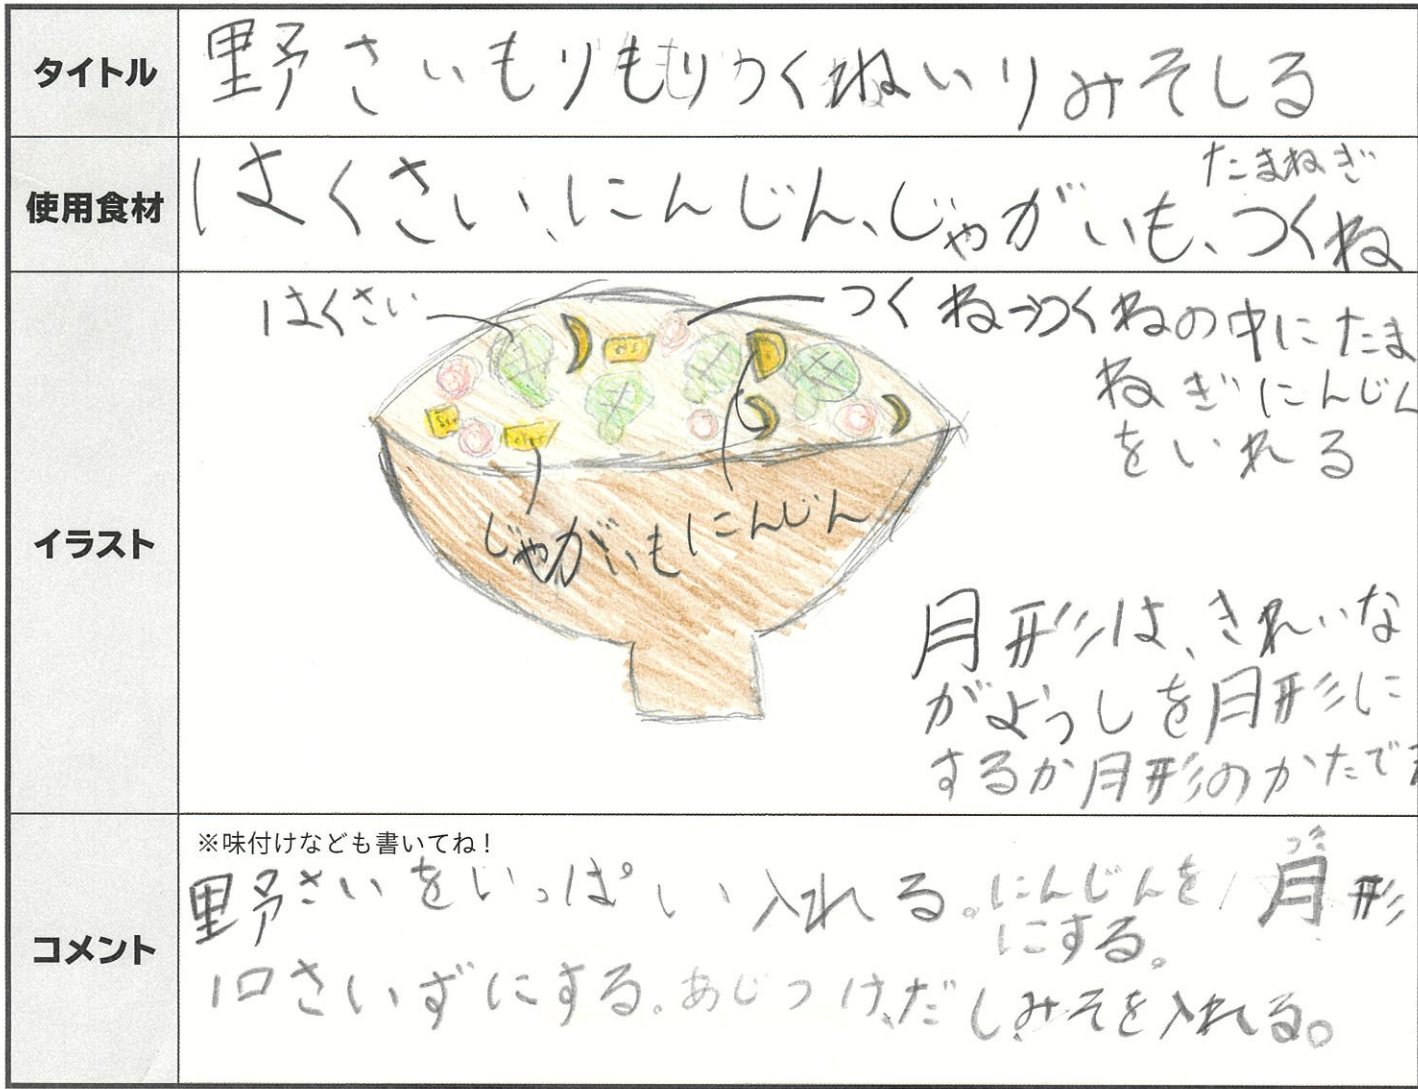 タイトル
野さいもりもりつくねいりみそしる
使用食材
たまねぎ
はくさい、にんじん、じゃがいも、つくね
イラスト
はくさい
つくね→つくねの中にたま
ねぎにんじん
をいれる
じゃがいも
にんじん
月形は、きれいな
がようしを月形に
するか月形のかたで
コメント
※味付けなども書いてね！
野さいをいっぱい入れる。にんじんを月形
にする。
一口さいずにする。あじつけ、だしみそを入れる。